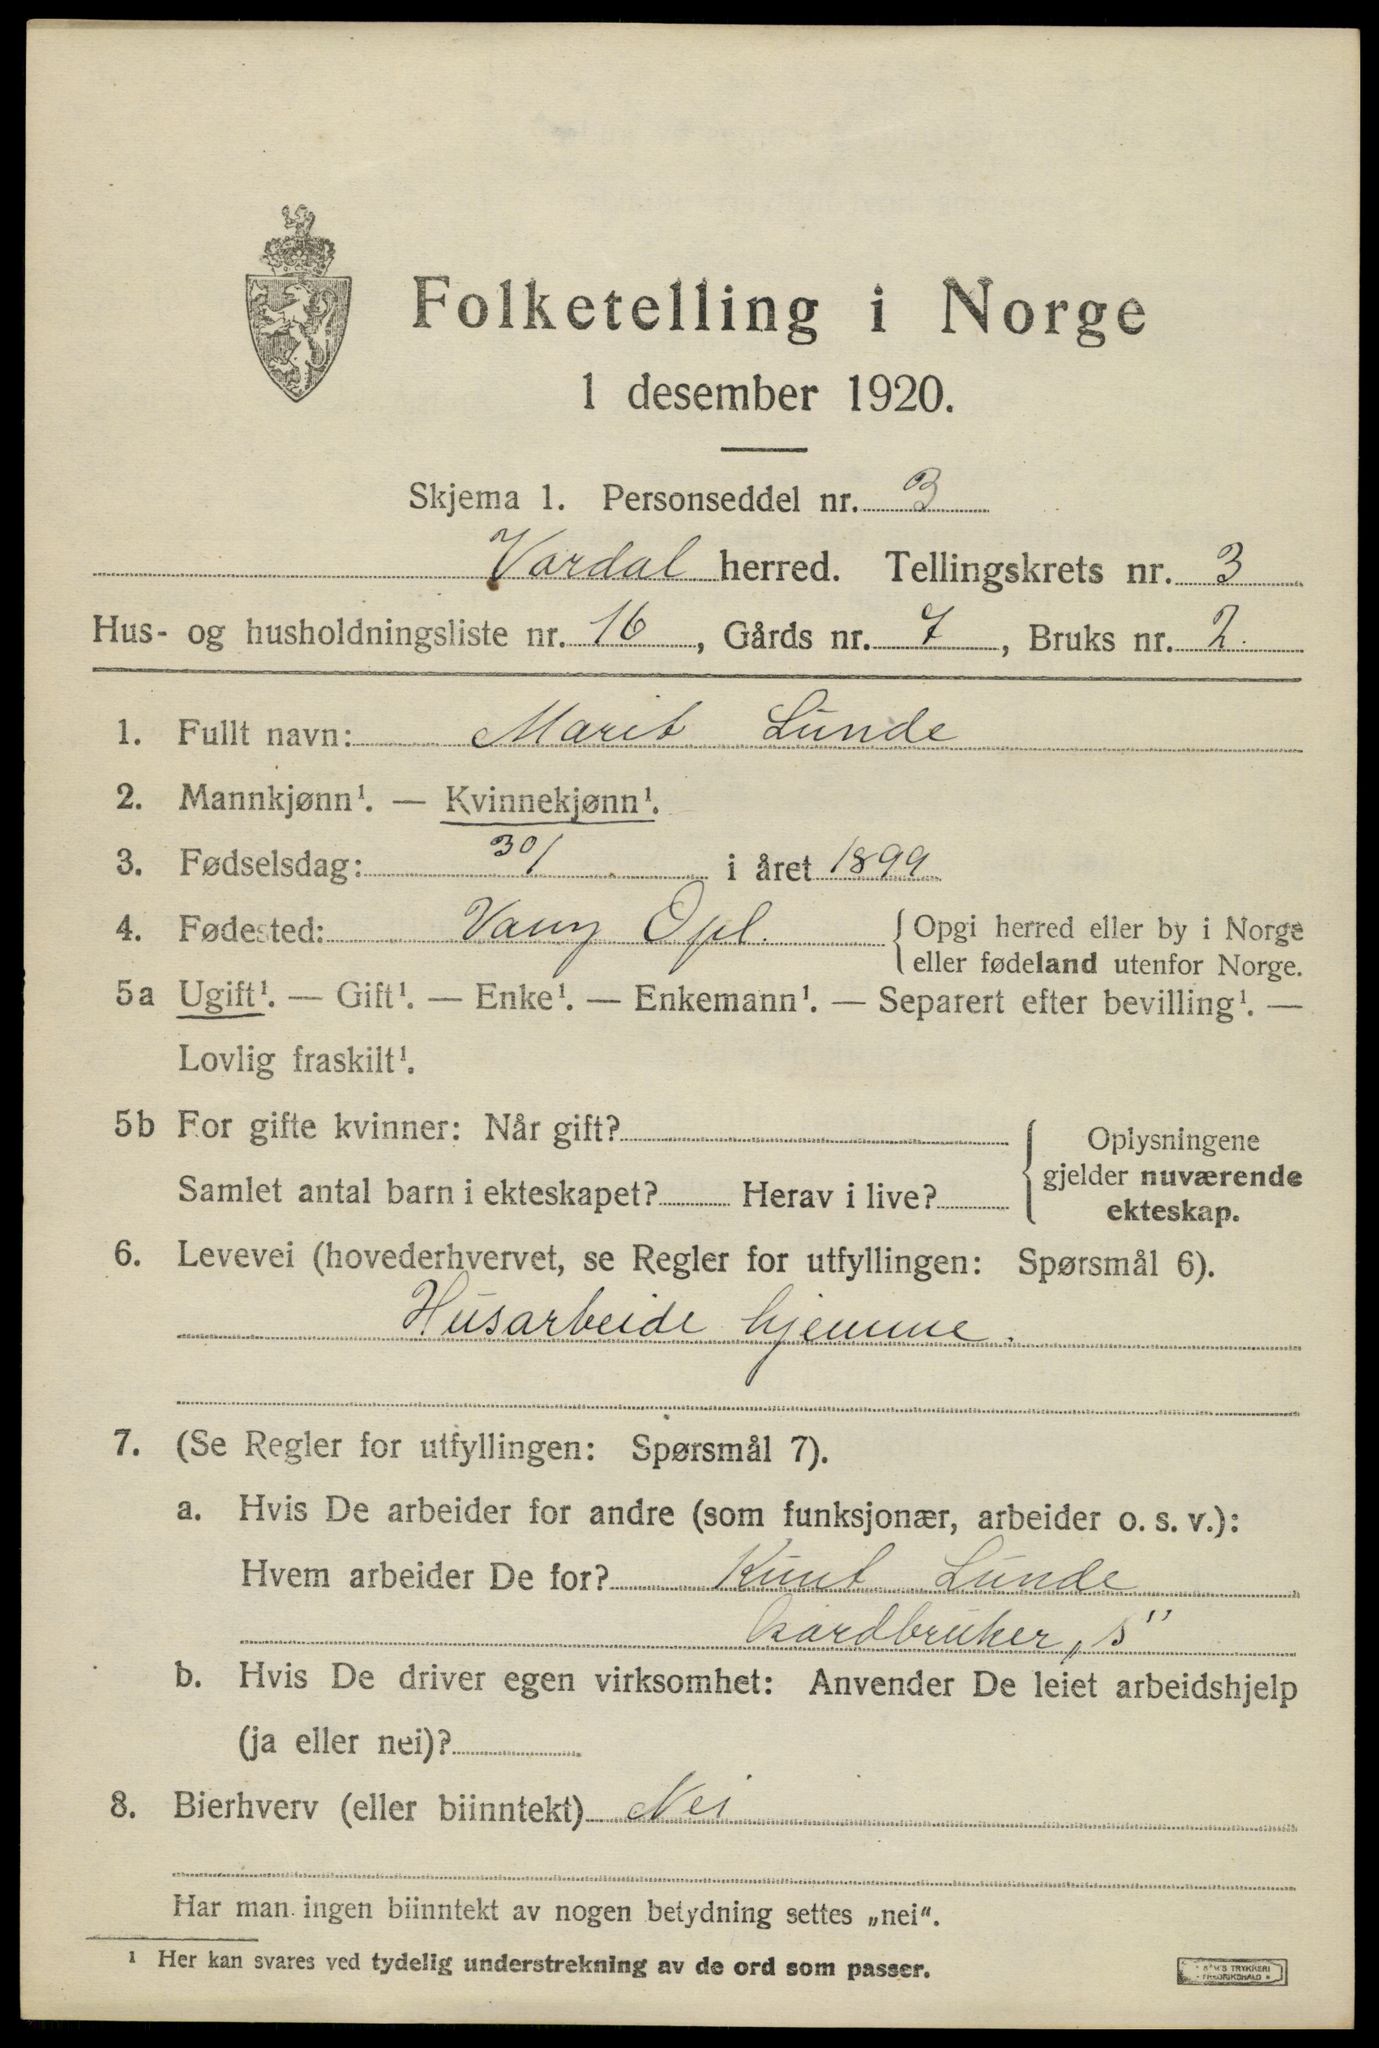 Folketelling i Norge
1 desember 1920.
Skjema 1. Personseddel nr. 3
Vardal herred. Tellingskrets nr. 3
Hus- og husholdningsliste nr. 16, Gårds nr. 7, Bruks nr. 2.
1. Fullt navn: Marit Lunde
2. Mannkjønn¹. — Kvinnekjønn¹.
3. Fødselsdag: 30/ i året 1899
4. Fødested: Vang Opl. { Opgi herred eller by i Norge
eller fødeland utenfor Norge.
5a Ugift¹. — Gift¹. — Enke¹. — Enkemann¹. — Separert efter bevilling¹. —
Lovlig fraskilt¹.
5b For gifte kvinner: Når gift?
Samlet antal barn i ekteskapet? Herav i live?
{ Oplysningene
gjelder nuværende
ekteskap.
6. Levevei (hovederhvervet, se Regler for utfyllingen: Spørsmål 6).
Husarbeide hjemme.
7. (Se Regler for utfyllingen: Spørsmål 7).
a. Hvis De arbeider for andre (som funksjonær, arbeider o. s. v.):
Hvem arbeider De for? Knut Lunde
Gardbruker „s"
b. Hvis De driver egen virksomhet: Anvender De leiet arbeidshjelp
(ja eller nei)?
8. Bierhverv (eller biinntekt) Nei
Har man ingen biinntekt av nogen betydning settes „nei".
¹ Her kan svares ved tydelig understrekning av de ord som passer.
TRYKKERI
FREDRIKSHALD